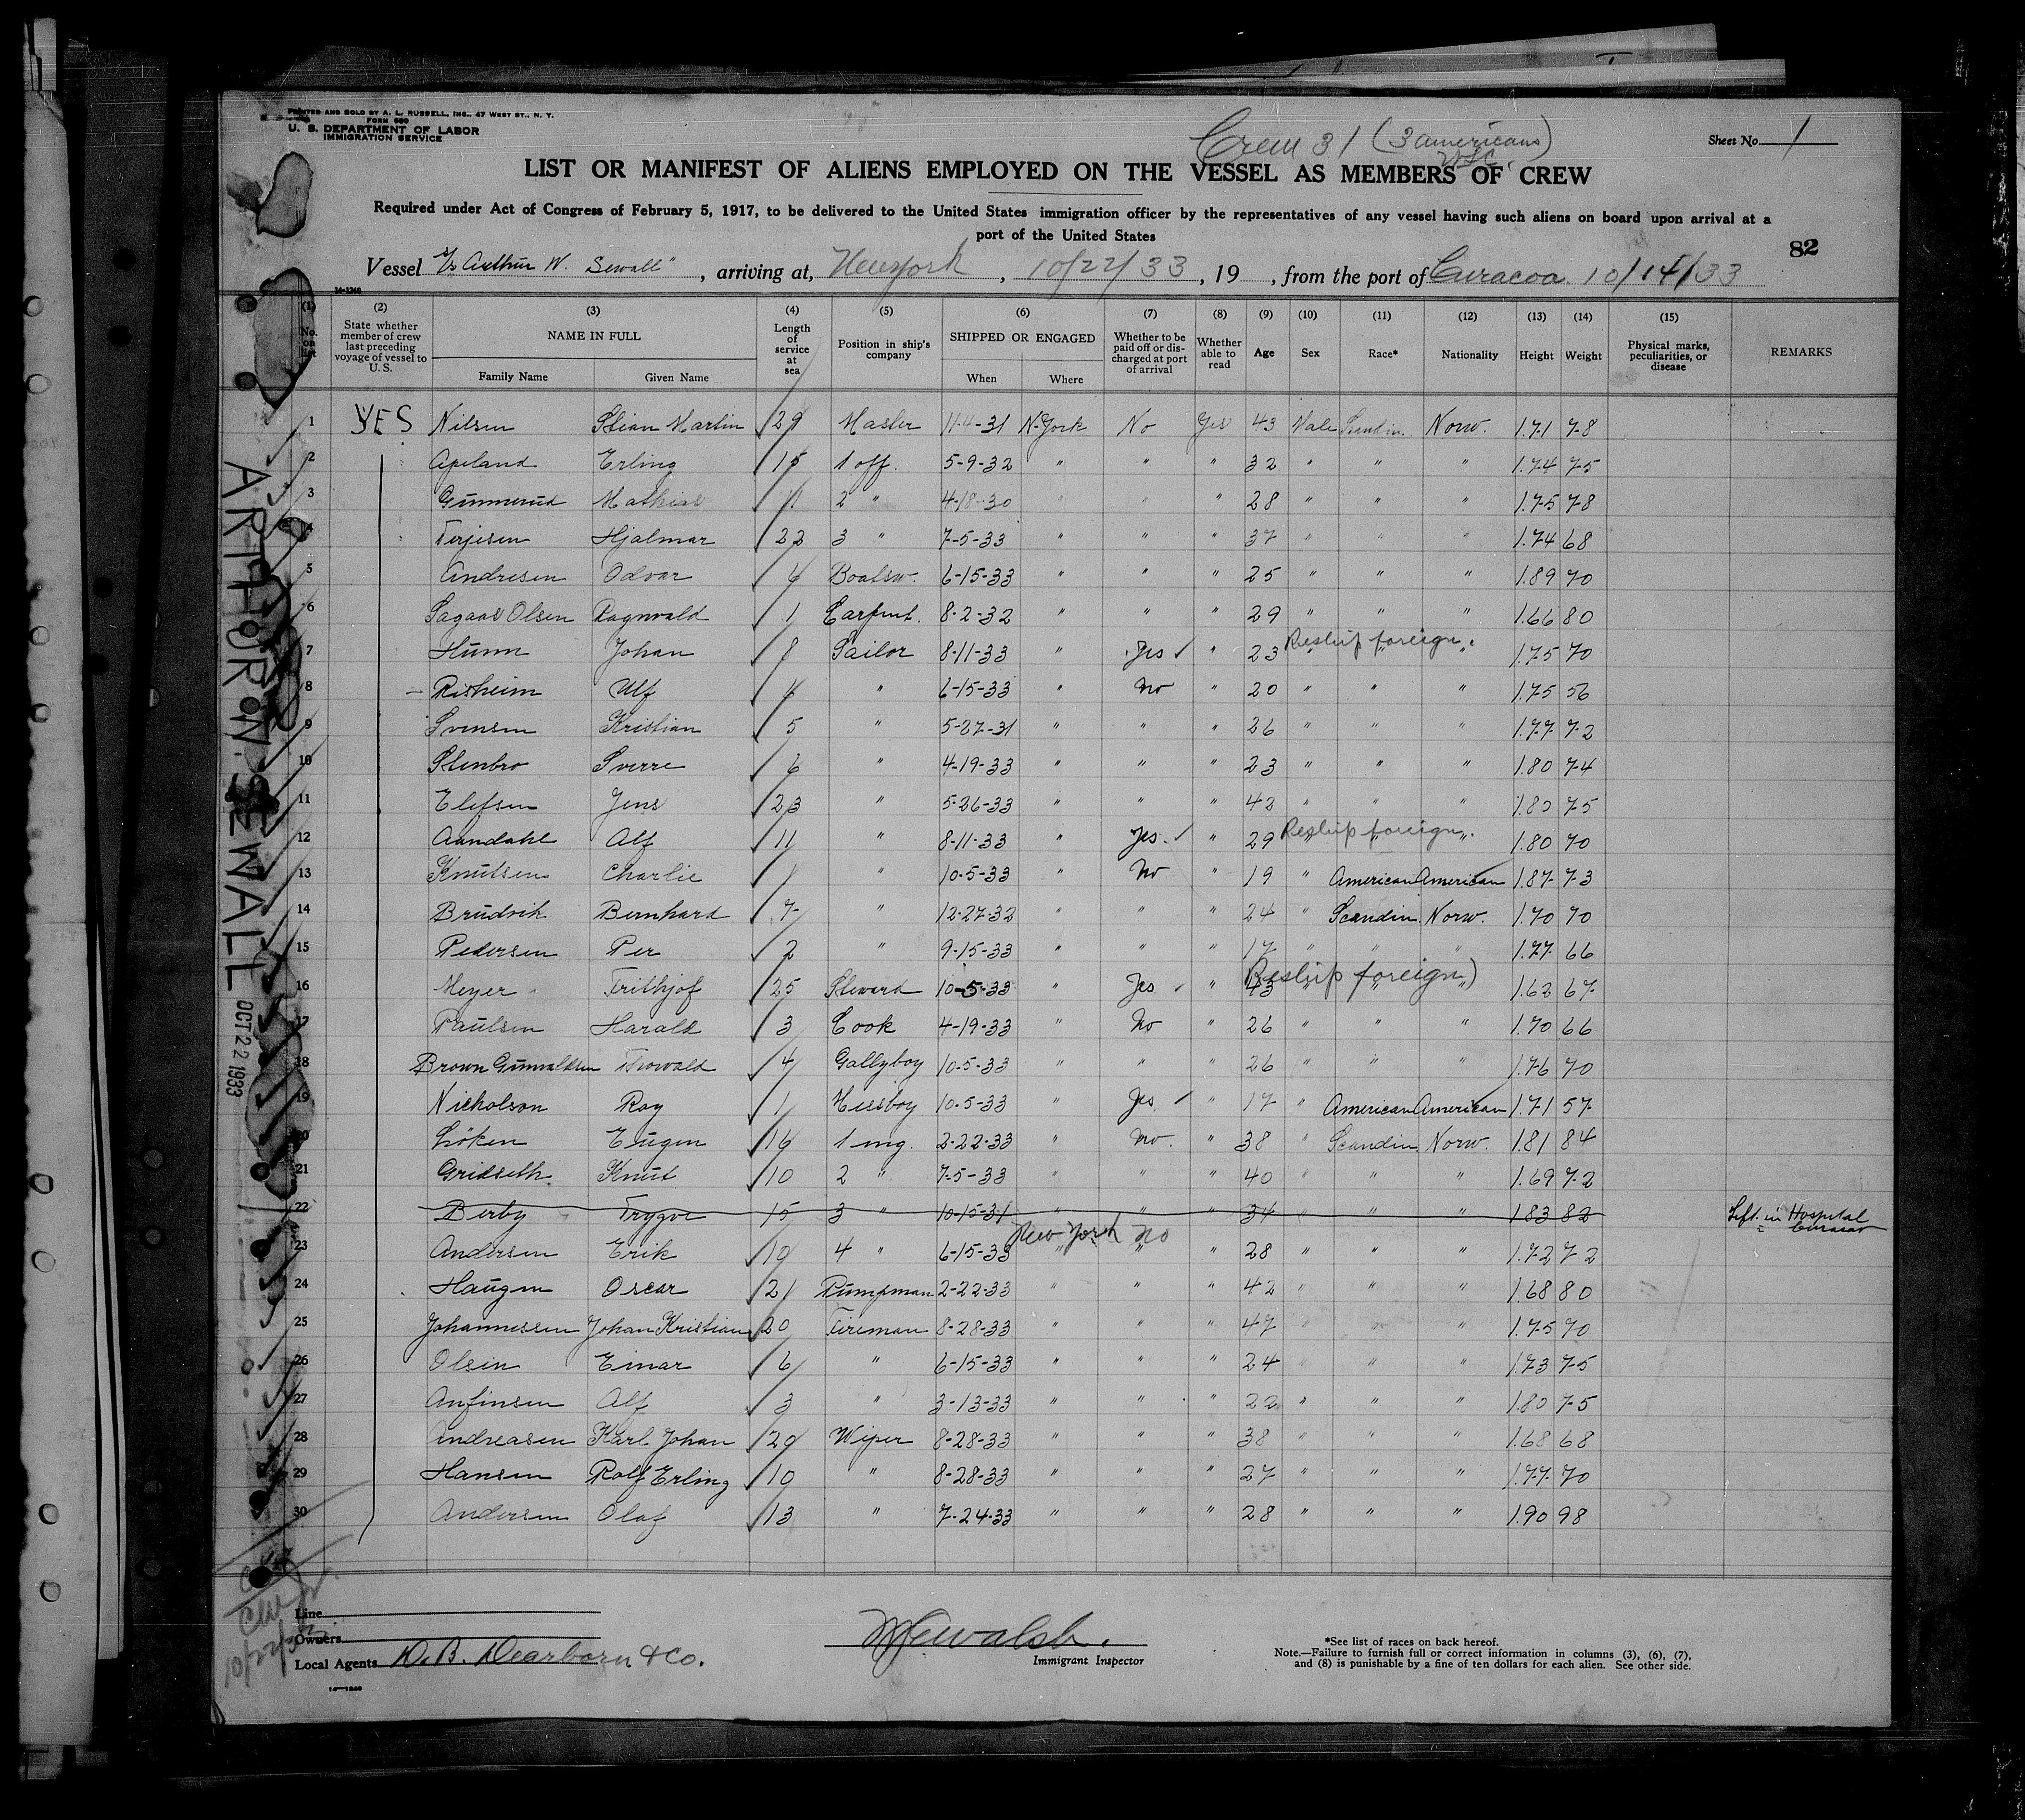 PRINTED AND SOLD BY A. L. RUSSELL, INC., 47 WEST ST., N. Y.
FORM 680
U. S. DEPARTMENT OF LABOR
IMMIGRATION SERVICE
Crew 31 (3 americans)
Sheet No. 1
LIST OR MANIFEST OF ALIENS EMPLOYED ON THE VESSEL AS MEMBERS OF CREW
Required under Act of Congress of February 5, 1917, to be delivered to the United States immigration officer by the representatives of any vessel having such aliens on board upon arrival at a
port of the United States
82
Vessel "Arthur W. Sewall", arriving at, New York, 10/22/33, 19 , from the port of Curacoa 10/14/33
14-1240
(1) No. on list (2) State whether member of crew last preceding voyage of vessel to U. S. (3) NAME IN FULL Family Name Given Name (4) Length of service at sea (5) Position in ship's company (6) SHIPPED OR ENGAGED When Where (7) Whether to be paid off or discharged at port of arrival (8) Whether able to read (9) Age (10) Sex (11) Race* (12) Nationality (13) Height (14) Weight (15) Physical marks, peculiarities, or disease REMARKS
1 YES Nilsen Stian Martin 29 Master 11-4-31 N-York No Yes 43 Male Scandin. Norw. 1.71 78
2 Apeland Erling 15 1 off. 5-9-32 " " " 32 " " " 1.74 75
3 Gunnerud Mathias 11 2 " 4-18-30 " " " 28 " " " 1.75 78
4 Terjesen Hjalmar 22 3 " 7-5-33 " " " 37 " " " 1.74 68
5 Andresen Odvar 6 Boatsw. 6-15-33 " " " 25 " " " 1.89 70
6 Sagaas Olsen Ragnvald 1 Carpent. 8-2-32 " " " 29 " " " 1.66 80
7 Hunn Johan 8 Sailor 8-11-33 " Yes " 23 Reship foreign. " 1.75 70
8 Risheim Ulf 4 " 6-15-33 " No " 20 " " " 1.75 56
9 Svensen Kristian 5 " 5-27-31 " " " 26 " " " 1.77 72
10 Stenbro Sverre 6 " 4-19-33 " " " 23 " " " 1.80 74
11 Elefsen Jens 23 " 5-26-33 " " " 42 " " " 1.80 75
12 Aandahl Alf 11 " 8-11-33 " Yes. " 29 Reship foreign. " 1.80 70
13 Knutsen Charlie 1 " 10-5-33 " No " 19 " American American 1.87 73
14 Brudvik Bernhard 7 " 12-27-32 " " " 24 " Scandin. Norw. 1.70 70
15 Pedersen Per 2 " 9-15-33 " " " 17 " " " 1.77 66
16 Meyer Frithjof 25 Steward 10-5-33 " Yes " 43 Reship foreign) " 1.62 67
17 Paulsen Harald 3 Cook 4-19-33 " No " 26 " " " 1.70 66
18 Brown Gunvaldsen Thorvald 4 Gallyboy 10-5-33 " " " 26 " " " 1.76 70
19 Nicholson Roy 1 Messboy 10-5-33 " Yes " 17 " American American 1.71 57
20 Löken Eugen 16 1 eng. 2-22-33 " No. " 38 " Scandin. Norw. 1.81 84
21 Gridseth Knut 10 2 " 7-5-33 " " " 40 " " " 1.69 72
22 Berby Trygve 15 3 " 10-15-31 " " " 34 " " " 1.83 82 Left in Hospital Curacao
23 Andersen Erik 10 4 " 6-15-33 New York No " 28 " " " 1.72 72
24 Haugen Oscar 21 Pumpman 2-22-33 " " " 42 " " " 1.68 80
25 Johannessen Johan Kristian 20 Fireman 8-28-33 " " " 47 " " " 1.75 70
26 Olsen Einar 6 " 6-15-33 " " " 24 " " " 1.73 75
27 Anfinsen Alf 3 " 3-13-33 " " " 22 " " " 1.80 75
28 Andreasen Karl Johan 20 Wiper 8-28-33 " " " 38 " " " 1.68 68
29 Hansen Rolf Erling 10 " 8-28-33 " " " 27 " " " 1.77 70
30 Andersen Olaf 13 " 7-24-33 " " " 28 " " " 1.90 98
ARTHUR W. SEWALL OCT 22 1933
Line
Owners
Local Agents D. B. Dearborn & Co.
Walsh.
Immigrant Inspector
*See list of races on back hereof.
Note.—Failure to furnish full or correct information in columns (3), (6), (7),
and (8) is punishable by a fine of ten dollars for each alien. See other side.
14—1240